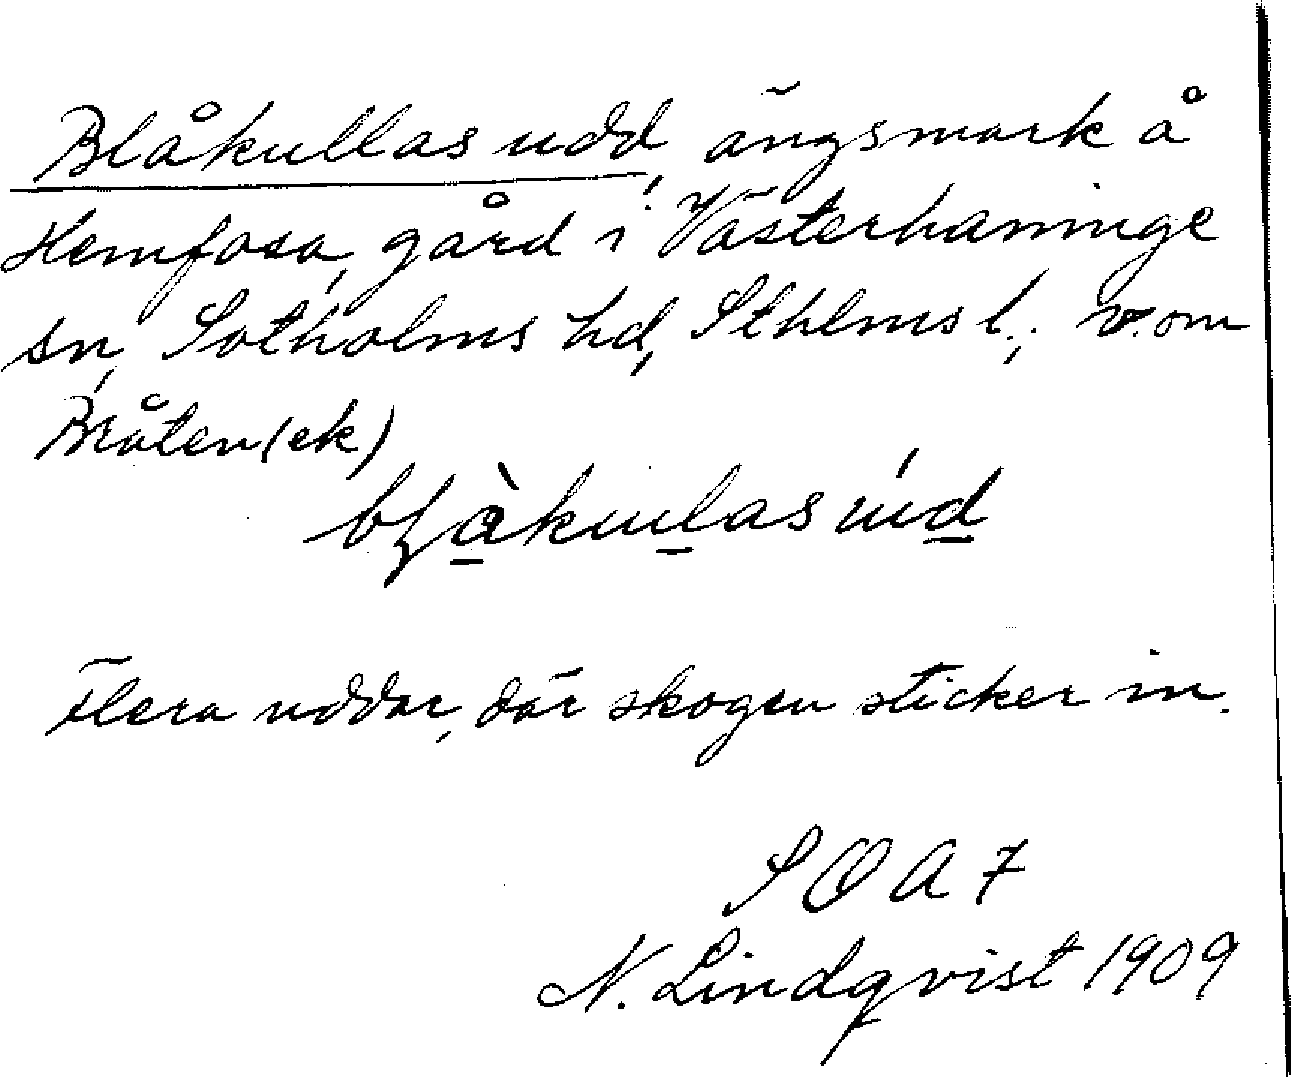 Blåkullas udd, ängsmark å
Hemfosa, gård i Västerhaninge
sn, Sotholms hd, Sthlms l.; v. om
Bråten (ek)
blå̀kulasúd
Flera uddar, där skogen sticker in.
SOA 7
N. Lindqvist 1909